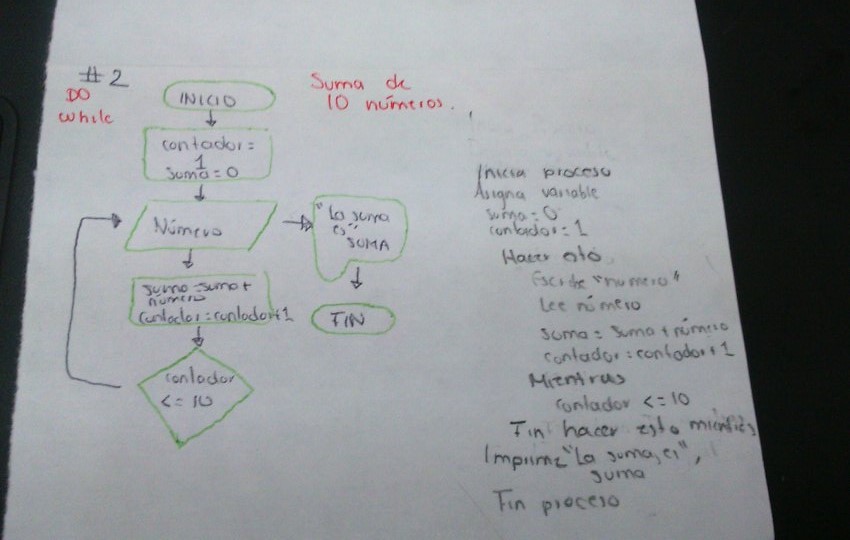 #2
DO
while
Suma de
10 números.
INICIO
contador =
1
suma = 0
Número
"La suma
es"
SUMA
suma = suma +
número
contador = contador + 1
FIN
contador
<= 10
Inicia proceso
Asigna variable
suma = 0
contador = 1
Hacer
Escribe "numero"
Lee número
suma = suma + número
contador = contador + 1
Mientras
contador <= 10
Fin hacer esto mientras
Imprime "La suma es",
suma
Fin proceso